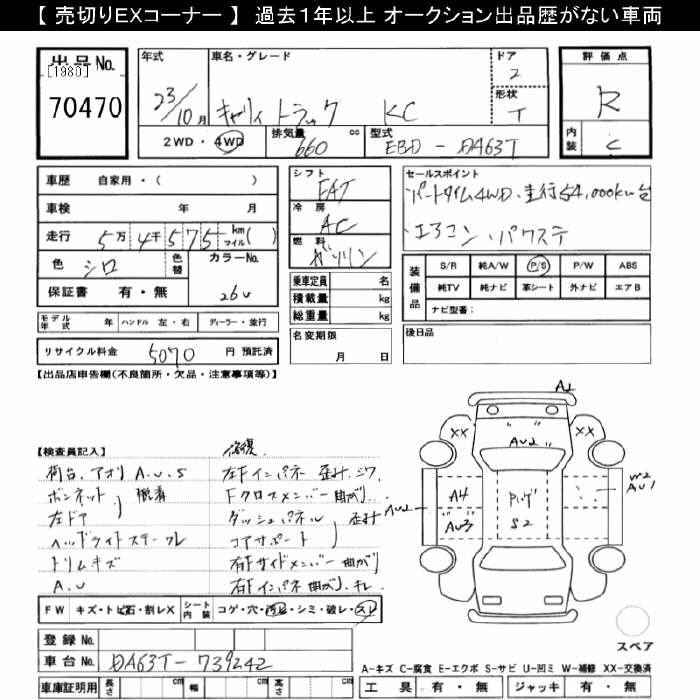 【 売切りEXコーナー 】 過去1年以上 オークション出品歴がない車両
出品No.
[1980]
70470
年式
23/10月
車名・グレード
キャリィ トラック KC
ドア
2
形状
T
評価点
R
内装
C
2WD・4WD
排気量
660
cc
型式
EBD-DA63T
車歴 自家用・( )
車検 年 月
走行 5万4千575 km マイル( )
色 シロ
色替
カラーNo.
26U
保証書 有・無
シフト
FAT
冷房
AC
燃料
ガソリン
乗車定員 名
積載量 kg
総重量 kg
セールスポイント
パートタイム4WD、走行54,000km台
エアコン・パワステ
装備品
S/R 純A/W P/S P/W ABS
純TV 純ナビ 革シート 外ナビ エアB
ナビ型番:
モデル年式 年 ハンドル 左・右 ディーラー・並行
リサイクル料金 5070 円 預託済
名変期限
月 日
後日品
【出品店申告欄(不良箇所・欠品・注意事項等)】
【検査員記入】
修復
荷台、アオリ A、U、S
左Fインパネ 歪み、シワ
ボンネット
左ドア
脱着
Fクロスメンバー 曲がり
ダッシュパネル
コアサポート
歪み
ヘッドライトステークレ
トリムキズ
右Fサイドメンバー 曲がり
A、U
右Fインパネ 曲がり、キレ
A1
XX
XX
AU2
AU2
A4
AU3
S2
W2
AU1
FW キズ・トビ石・割レX
シート内装
コゲ・穴・汚レ・シミ・破レ・スレ
登録No.
車台No. DA63T-739242
車庫証明用 長さ cm 幅 cm 高さ cm
スペア
A-キズ C-腐食 E-エクボ S-サビ U-凹ミ W-補修 XX-交換済
工具 有・無 ジャッキ 有・無